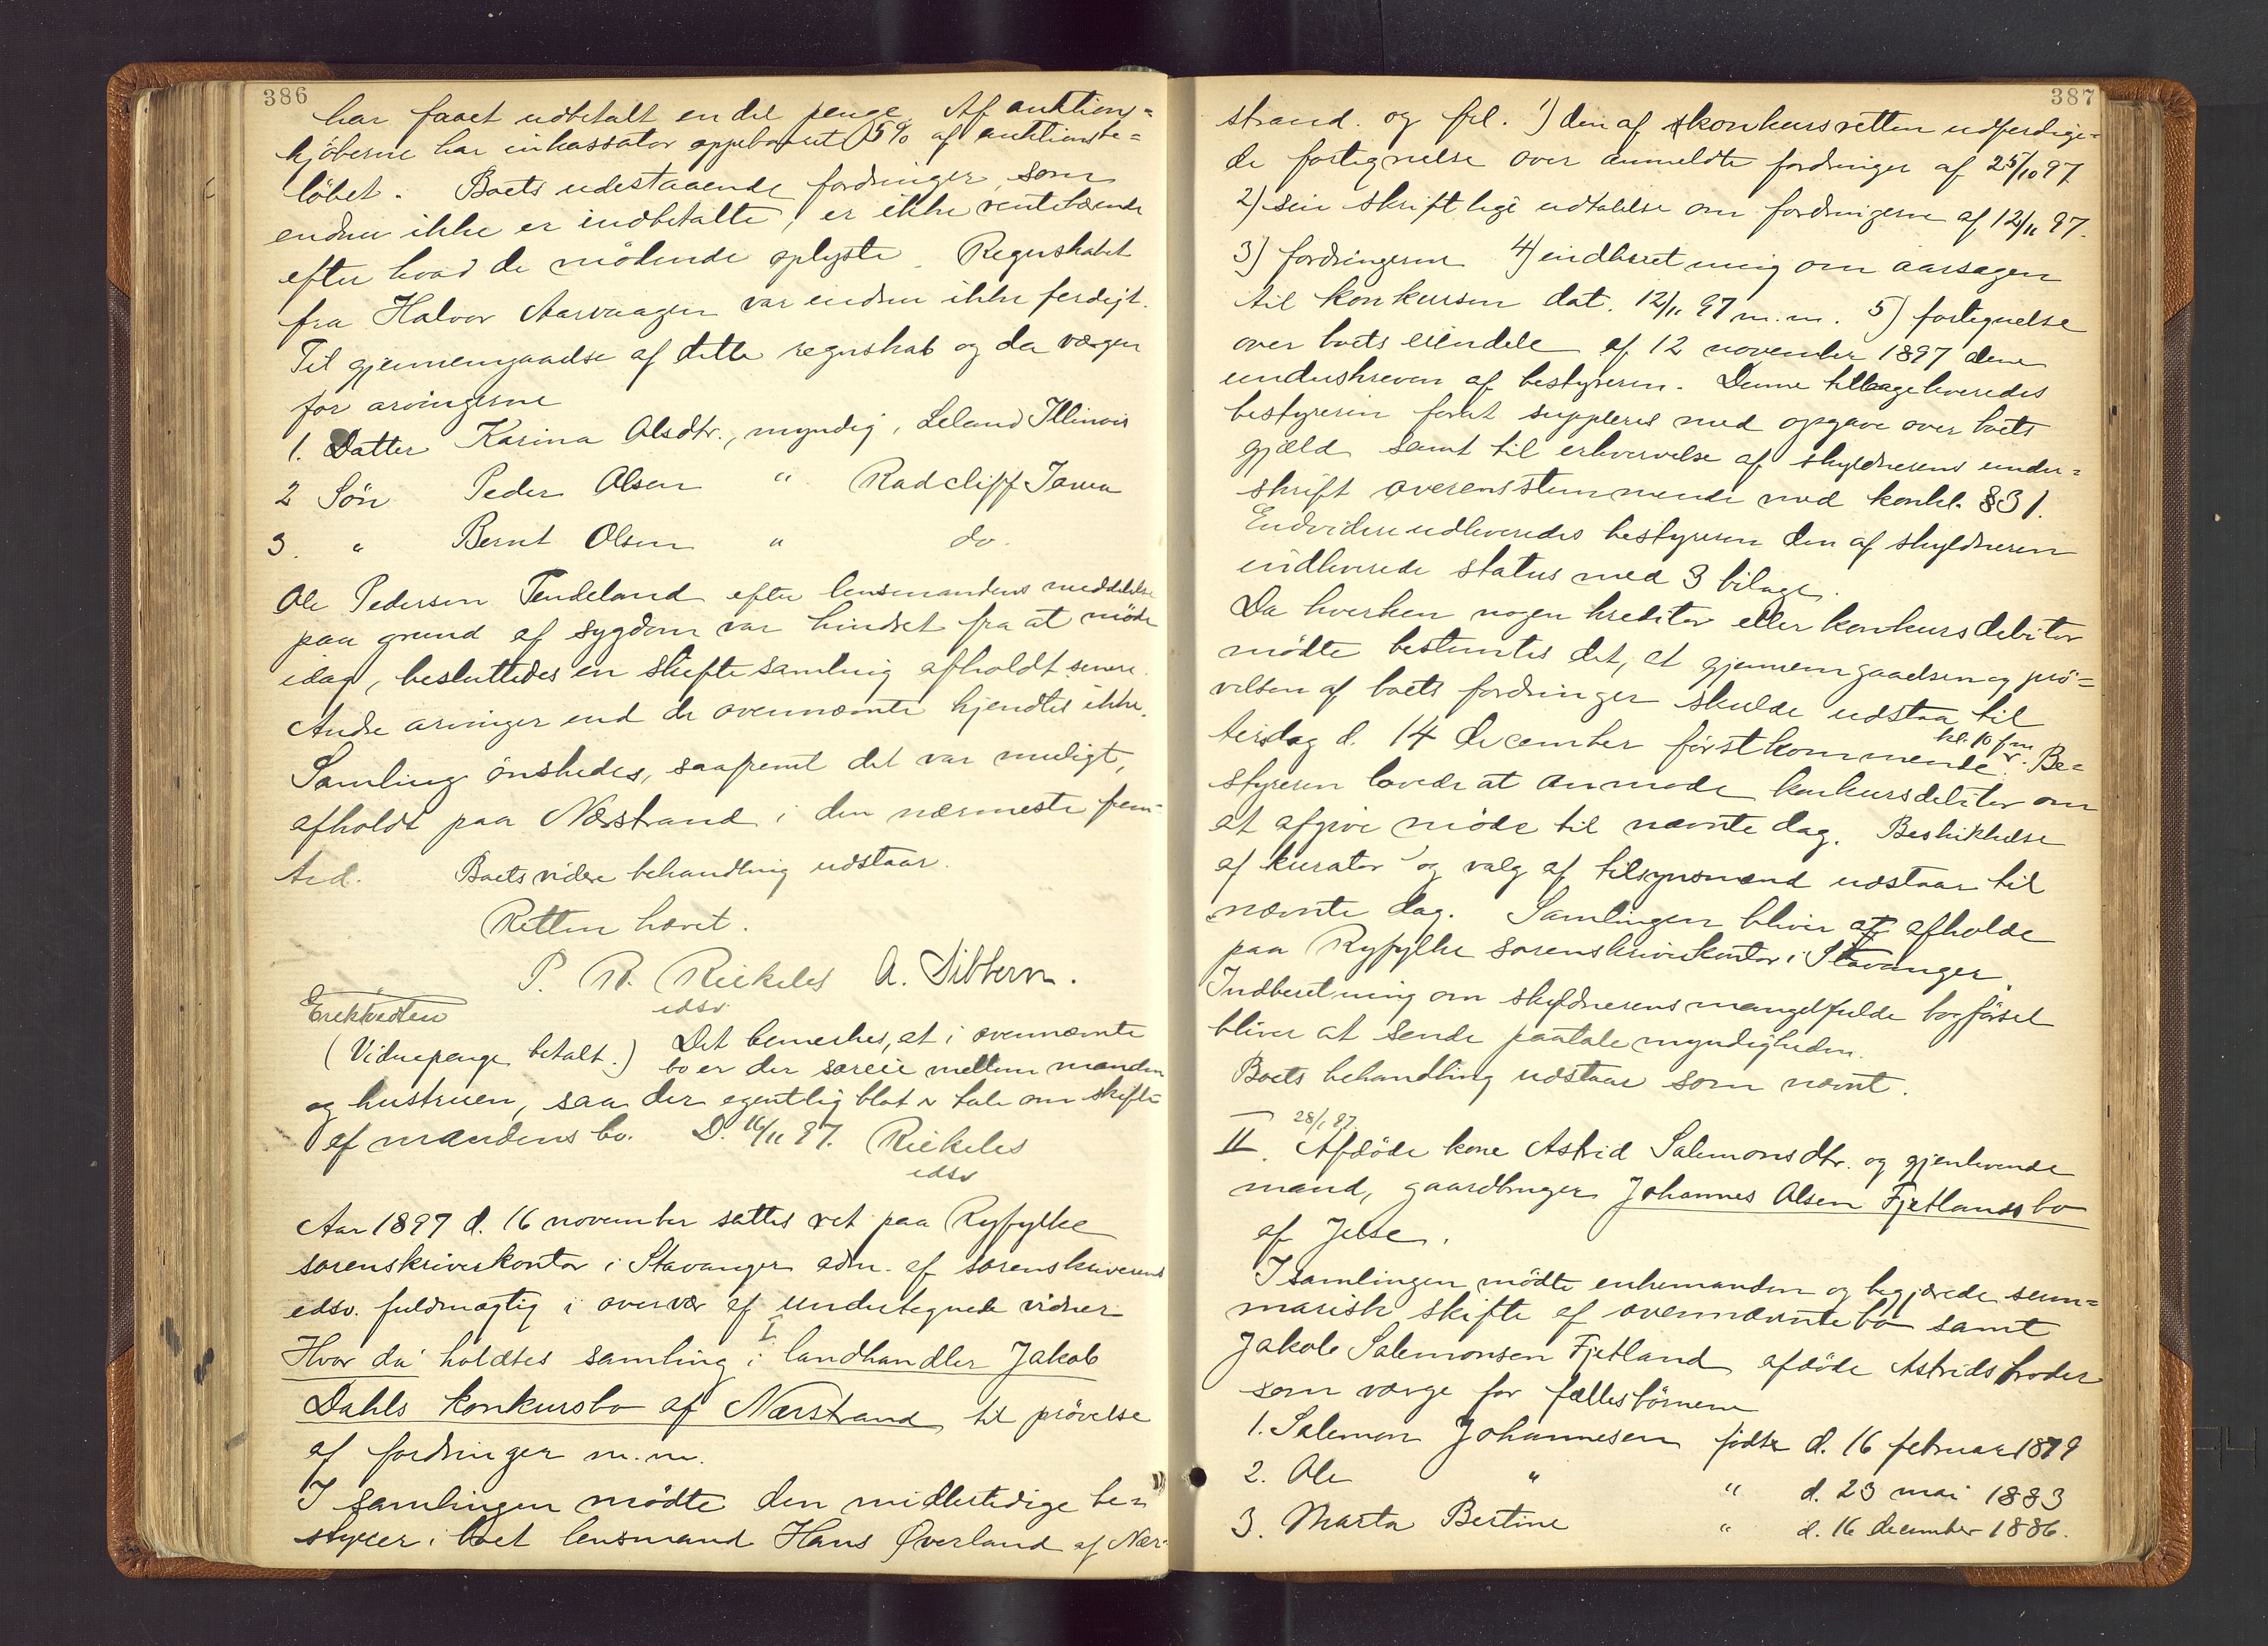 386
har faaet udbetalt en del penge. Af auktions=
kjøberne har inkassator oppebaaret 5% af auktionsbe=
løbet. Boets udestaaende fordringer, som
endnu ikke er indbetalte, er ikke rentebærende
efter hvad de mødende oplyste. Regnskabet
fra Halvor Aarvaagen var endnu ikke ferdigt.
Til gjennemgaaelse af dette regnskab og da værgen
for arvingerne
1. Datter Karina Olsdtr., myndig, Leland Illinois
2 Søn Peder Olsen " Radcliff Iowa
3. " Bernt Olsen " do.
Ole Pedersen Tendeland efter lensmandens meddelelse
paa grund af sygdom var hindret fra at møde
idag, besluttedes en skiftesamling afholdt senere.
Andre arvinger end de ovennævnte kjendtes ikke.
Samling ønskedes, saafremt det var muligt,
afholdt paa Nærstrand i den nærmeste frem=
tid. Boets videre behandling udstaar.
Retten hævet.
P. R. Riekeles A. Sibbern.
edsv
Erektvedten
(Vidnepenge betalt.) Det bemerkes, at i ovennævnte
bo er der særeie mellem manden
og hustruen, saa der egentlig blot er tale om skifte
af mandens bo. D. 16/11 97. Riekeles
edsv
Aar 1897 d. 16 november sattes ret paa Ryfylke
sorenskriverkontor i Stavanger adm. af sorenskriverens
edsv. fuldmægtig i overvær af undertegnede vidner
I.
Hvor da holdtes samling i landhandler Jakob
Dahls konkursbo af Nærstrand til prøvelse
af fordringer m.m.
I samlingen mødte den midlertidige be=
styrer i boet lensmand Hans Øverland af Nær=
387
strand. og frl. 1) den af konkursretten udferdige=
de fortegnelse over anmeldte fordringer af 25/10 97
2) sin skriftlige udtalelse om fordringerne af 12/11 97.
3) fordringerne 4) indberetning om aarsagen
til konkursen dat. 12/11 97 m.m. 5) fortegnelse
over boets eiendele af 12 november 1897 
underskreven af bestyreren. Denne tilbageleveredes
bestyreren forat suppleres med opgave over boets
gjæld samt til erhvervelse af skyldnerens under=
skrift overensstemmende med konkl. §31.
Endvidere udleveredes bestyreren den af skyldneren
indleverede status med 3 bilage.
Da hverken nogen kreditor eller konkursdebitor
mødte bestemtes det, at gjennemgaaelsen og prø=
velsen af boets fordringer skulde udstaa til
tirsdag d. 14 december førstkommende kl. 10 fm. Be=
styreren lovede at anmode konkursdebitor om
at afgive møde til nævnte dag. Beskikkelse
af kurator og valg af tilsynsmænd udstaar til
nævnte dag. Samlingen bliver at afholde
paa Ryfylke sorenskriverkontor i Stavanger.
Indberetning om skyldnerens mangelfulde bogførsel
bliver at sende paatalemyndigheden.
Boets behandling udstaar som nævnt.
28/1 97
II. Afdøde kone Astrid Salemonsdtr. og gjenlevende
mand, gaardbruger Johannes Olsen Fjetlands bo
af Jelse.
I samlingen mødte enkemanden og begjærede sum=
marisk skifte af ovennævnte bo samt
Jakob Salemonsen Fjetland afdøde Astrids broder
som værge for fællesbørnene
1. Salemon Johannesen født d. 16 februar 1879
2. Ole " " d. 23 mai 1883
3. Marta Bertine " d. 16 december 1886.